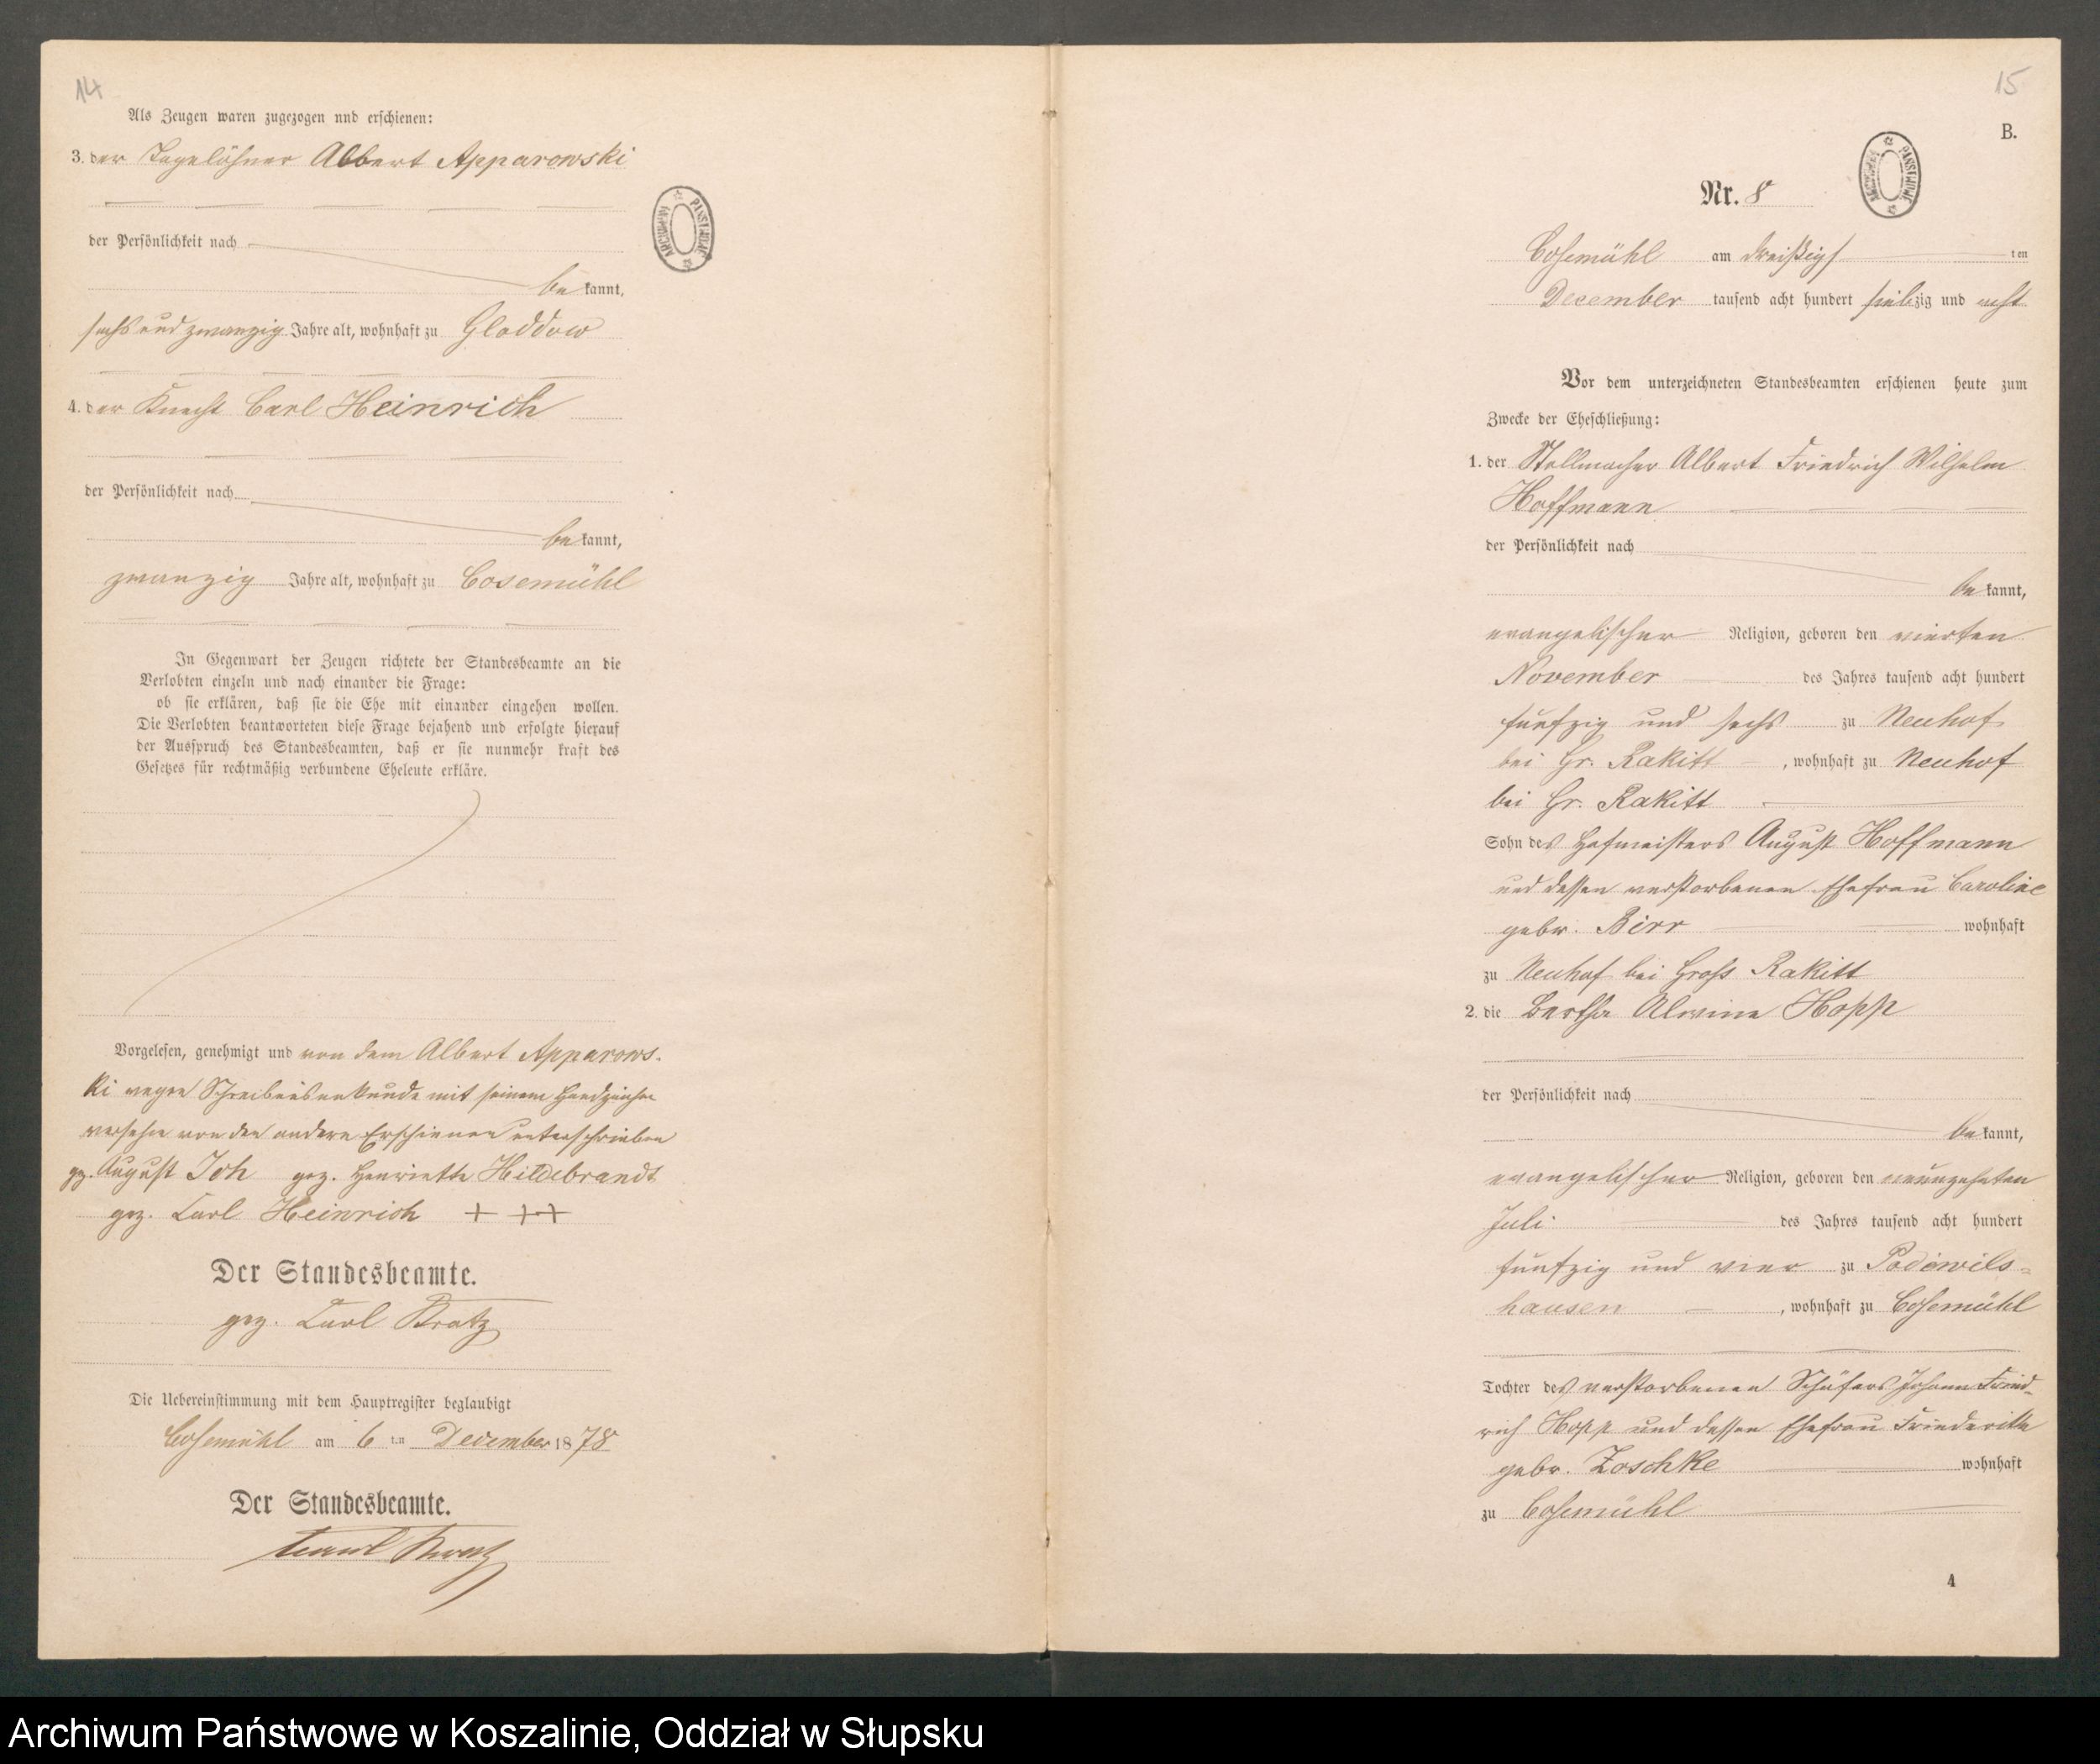 14
Als Zeugen waren zugezogen und erschienen:
3. der Tagelöhner Albert Apparowski
der Persönlichkeit nach
bekannt,
sechs und zwanzig Jahre alt, wohnhaft zu Gloddow
4. der Knecht Carl Heinrich
der Persönlichkeit nach
bekannt,
zwanzig Jahre alt, wohnhaft zu Cosemühl
In Gegenwart der Zeugen richtete der Standesbeamte an die
Verlobten einzeln und nach einander die Frage:
ob sie erklären, daß sie die Ehe mit einander eingehen wollen.
Die Verlobten beantworteten diese Frage bejahend und erfolgte hierauf
der Ausspruch des Standesbeamten, daß er sie nunmehr kraft des
Gesetzes für rechtmäßig verbundene Eheleute erkläre.
Vorgelesen, genehmigt und von dem Albert Apparows-
ki wegen Schreibensunkunde mit seinem Handzeichen
versehen von den andern Erschienenen unterschrieben
gez. August Joh gez. Henriette Hildebrandt
gez. Carl Heinrich + ++
Der Standesbeamte.
gez. Carl Kratz
Die Uebereinstimmung mit dem Hauptregister beglaubigt
Cosemühl am 6 ten December 1878
Der Standesbeamte.
Carl Kratz
ARCHIWUM PAŃSTWOWE
15
B.
ARCHIWUM PAŃSTWOWE
Nr. 8
Cosemühl am dreißigsten
December tausend acht hundert siebzig und acht
Vor dem unterzeichneten Standesbeamten erschienen heute zum
Zwecke der Eheschließung:
1. der Stellmacher Albert Friedrich Wilhelm
Hoffmann
der Persönlichkeit nach
bekannt,
evangelischer Religion, geboren den vierten
November des Jahres tausend acht hundert
fünfzig und sechs zu Neuhof
bei Gr. Rakitt, wohnhaft zu Neuhof
bei Gr. Rakitt
Sohn des Hofmeisters August Hoffmann
und dessen verstorbenen Ehefrau Caroline
gebr. Birr wohnhaft
zu Neuhof bei Gross Rakitt
2. die Bertha Alwine Hopp
der Persönlichkeit nach
bekannt,
evangelischer Religion, geboren den neunzehnten
Juli des Jahres tausend acht hundert
fünfzig und vier zu Podewils-
hausen, wohnhaft zu Cosemühl
Tochter des verstorbenen Schäfers Johann Fried-
rich Hopp und dessen Ehefrau Friederike
gebr. Zoschke wohnhaft
zu Cosemühl
4
Archiwum Państwowe w Koszalinie, Oddział w Słupsku